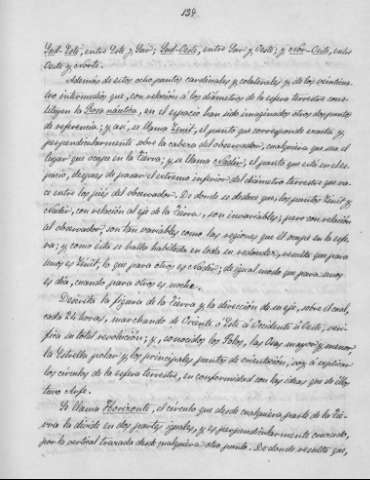 134
Sud-Este, entre Este y Sur; Sud-Oeste, entre Sur y Oeste; y Nor-Oeste, entre
Oeste y Norte.
Además de estos ocho puntos cardinales y colaterales y de los veinticua-
tro intermedios que, con relación a los diámetros de la esfera terrestre cons-
tituyen la Rosa náutica, en el espacio han sido imaginados otros dos puntos
de referencia; y así, se llama Zenit, el punto que corresponde exacta y
perpendicularmente sobre la cabeza del observador, cualquiera que sea el
lugar que ocupe en la Tierra; y se llama Nadir, el punto que está en el es-
pacio, después de pasar el extremo inferior del diámetro terrestre que na-
ce entre los pies del observador. De donde se deduce que, los puntos Zenit y
Nadir, con relación al eje de la Tierra, son invariables; pero con relación
al observador, son tan variables como las regiones que él ocupe en la esfe-
ra; y como ésta se halla habitada en toda su redondez, resulta que para
unos es Zenit, lo que para otros es Nadir; de igual modo que para unos
es día, cuando para otros es noche.
Descrita la figura de la Tierra y la dirección de su eje, sobre el cual,
cada 24 horas, marchando de Oriente o Este á Occidente ú Oeste, veri-
fica su total revolución; y, conocidos los Polos, las Osas mayor y menor,
la Estrella polar y los principales puntos de orientación, voy á explicar
los círculos de la esfera terrestre, en conformidad con las ideas que
Se llama Horizonte, el círculo que desde cualquiera parte de la Tie-
rra la divide en dos partes iguales, y es perpendicularmente cruzado,
por la vertical trazada desde cualquiera otro punto. De donde resulta que,